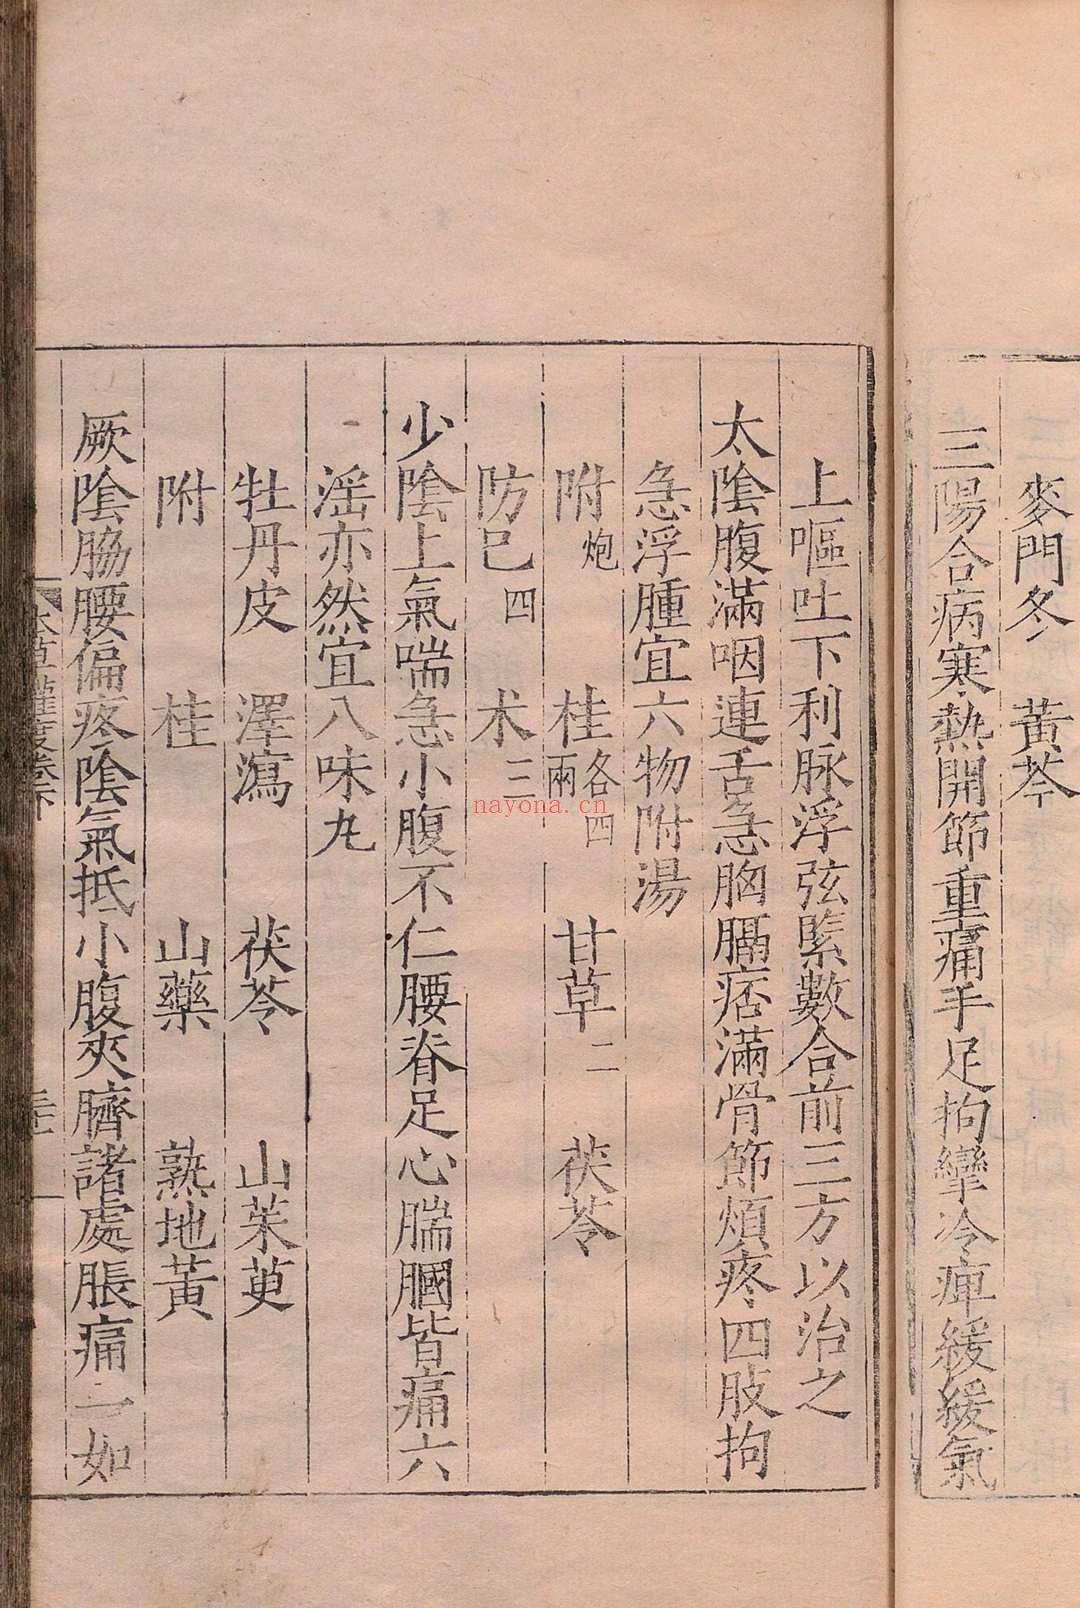 麥門冬　黃芩
三陽合病寒熱開節重痛手足拘攣冷痺緩緩氣
上嘔吐下利脉浮弦緊數合前三方以治之
太陰腹滿咽連舌急胸膈痞滿骨節煩疼四肢拘
急浮腫宜六物附湯
附炮　桂各四兩　甘草二　茯苓
防巳四　术三
少陰上氣喘急小腹不仁腰脊足心腨膕皆痛六
淫亦然宜八味丸
牡丹皮　澤瀉　茯苓　山茱萸
附　桂　山藥　熟地黃
厥陰脇腰偏疼陰氣抵小腹夾臍諸處脹痛一如
nayona.cn